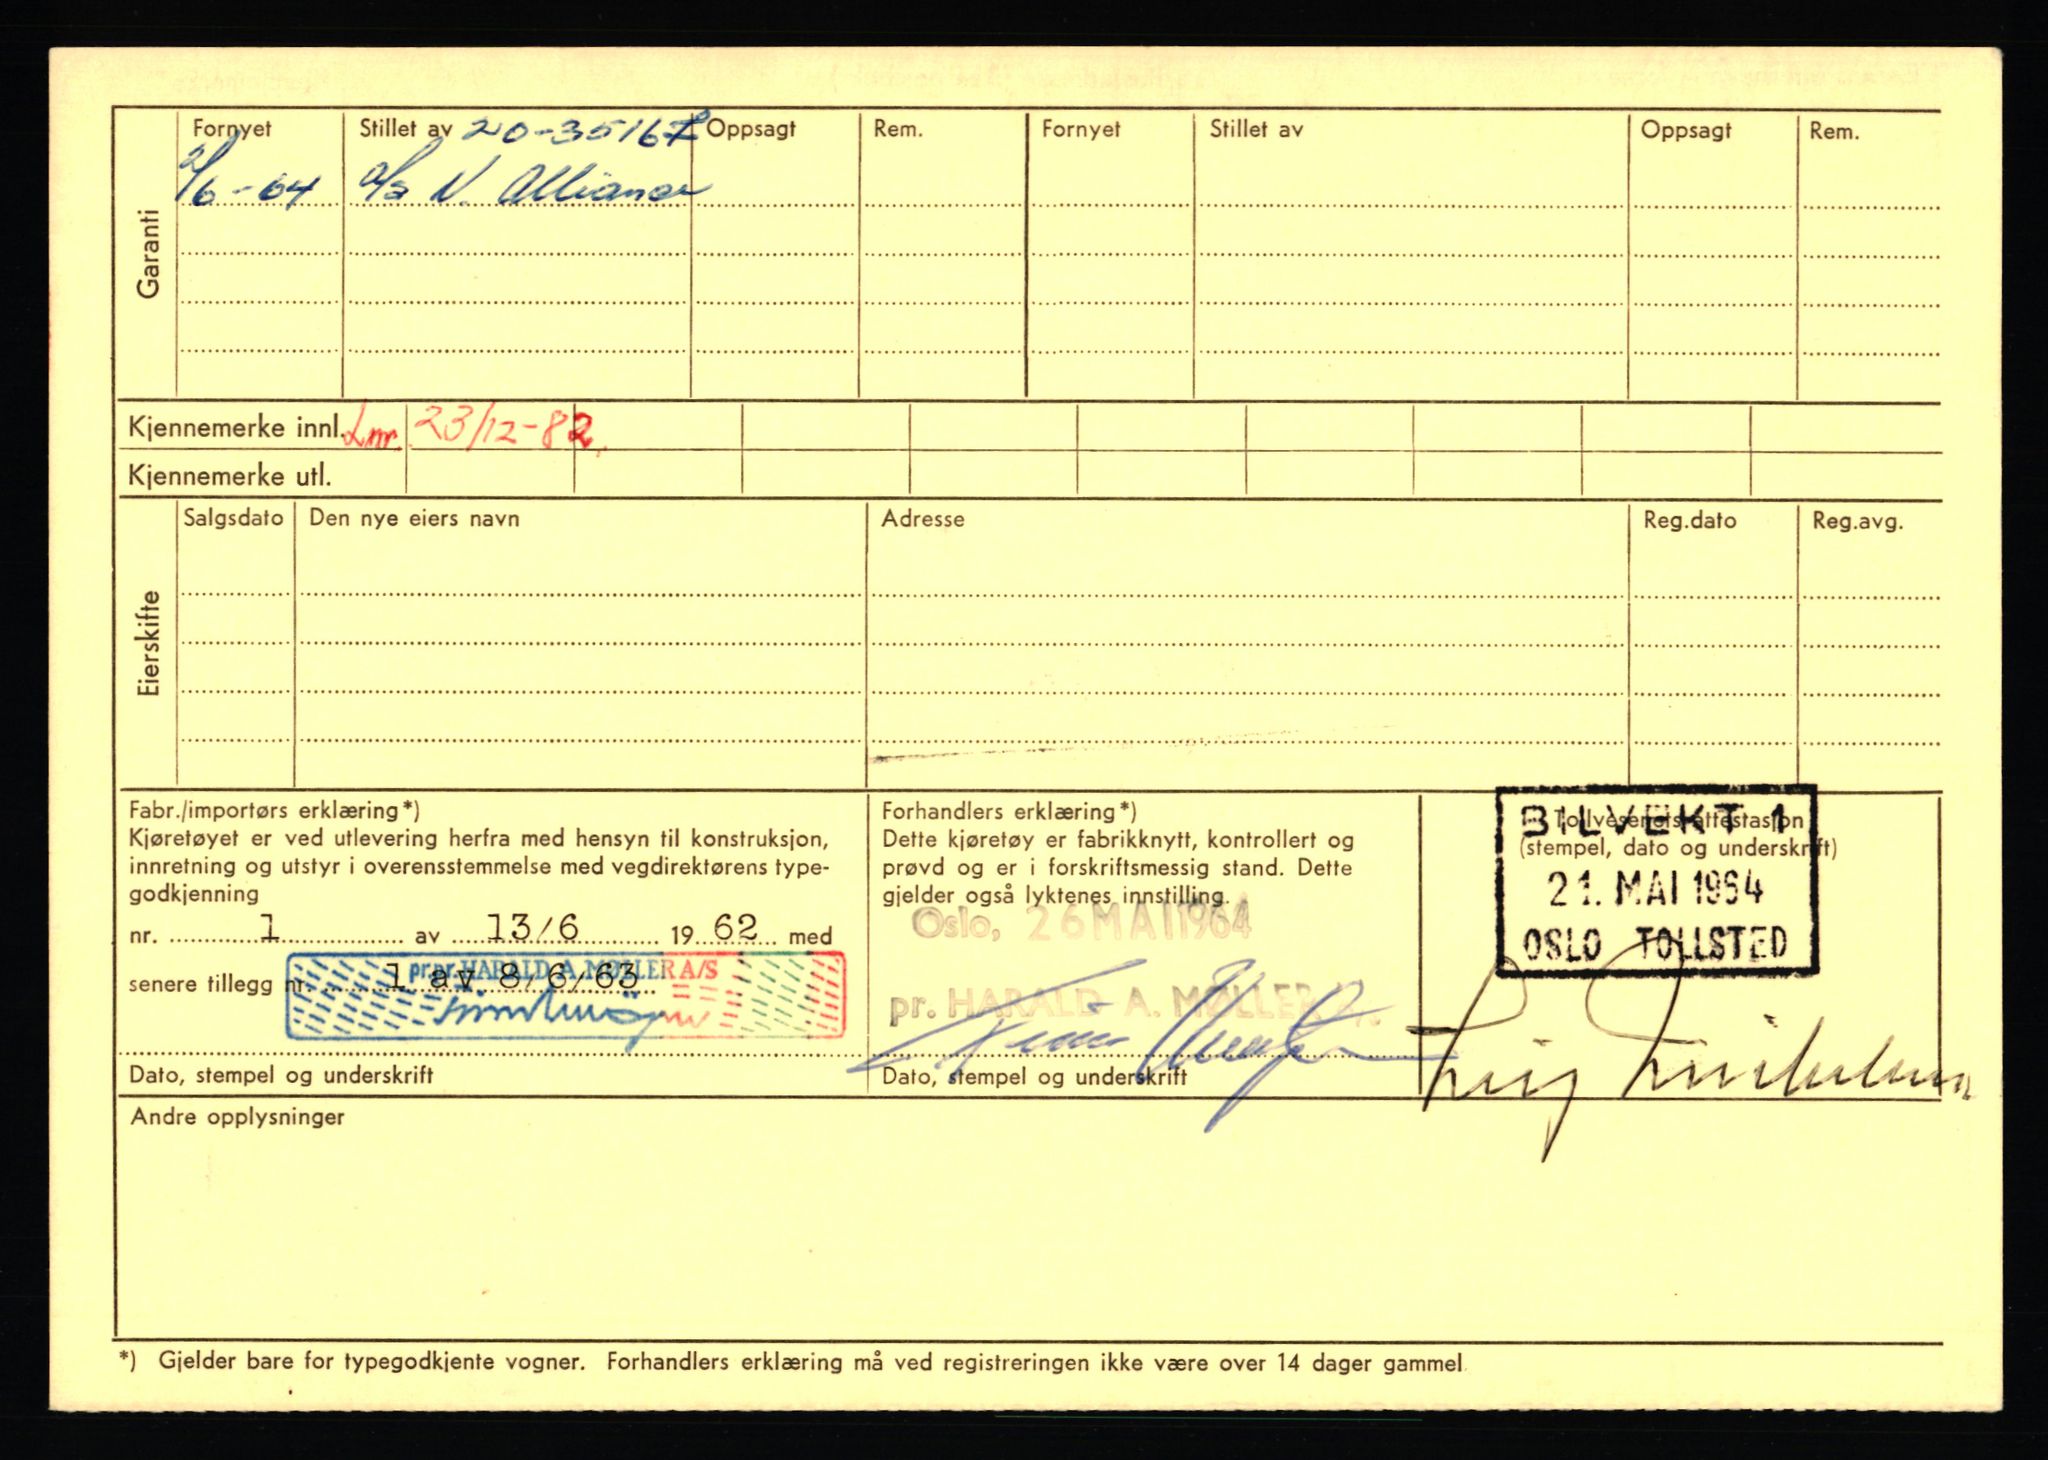 Garanti
Fornyet Stillet av 20-35167 Oppsagt Rem. Fornyet Stillet av Oppsagt Rem.
2/6-64 a/s N. Alliance
Kjennemerke innl. Lnr. 23/12-82.
Kjennemerke utl.
Eierskifte
Salgsdato Den nye eiers navn Adresse Reg.dato Reg.avg.
Fabr./importørs erklæring*)
Kjøretøyet er ved utlevering herfra med hensyn til konstruksjon,
innretning og utstyr i overensstemmelse med vegdirektørens type-
godkjenning
nr. 1 av 13/6 1962 med
senere tillegg nr. 1 av 8/6/63
pr.pr. HARALD A. MØLLER A/S
Dato, stempel og underskrift
Forhandlers erklæring*)
Dette kjøretøy er fabrikknytt, kontrollert og
prøvd og er i forskriftsmessig stand. Dette
gjelder også lyktenes innstilling.
Oslo, 26 MAI 1964
pr. HARALD A. MØLLER
Dato, stempel og underskrift
Tollvesenets attestasjon
(stempel, dato og underskrift)
BILVEKT 1
21. MAI 1964
OSLO TOLLSTED
Andre opplysninger
*) Gjelder bare for typegodkjente vogner. Forhandlers erklæring må ved registreringen ikke være over 14 dager gammel.